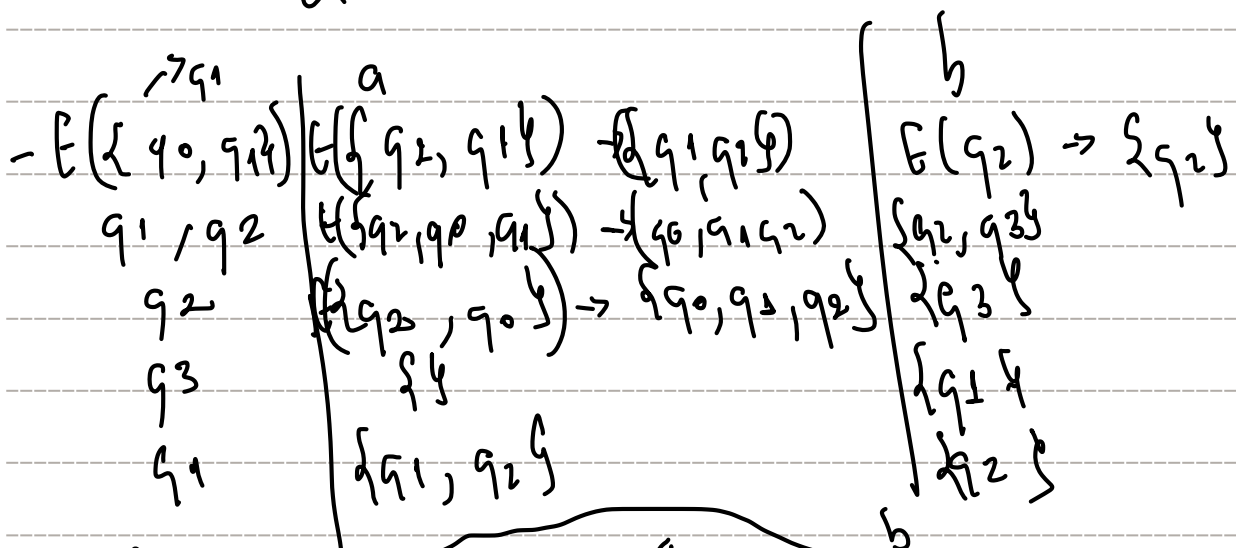 →q1 a b
- E({q0, q1}) E({q2, q1}) → {q1, q2} E(q2) → {q2}
q1, q2 E({q2, q0, q1}) → {q0, q1, q2} {q2, q3}
q2 E({q2, q0}) → {q0, q1, q2} {q3}
q3 {} {q1}
q1 {q1, q2} {q2}
b